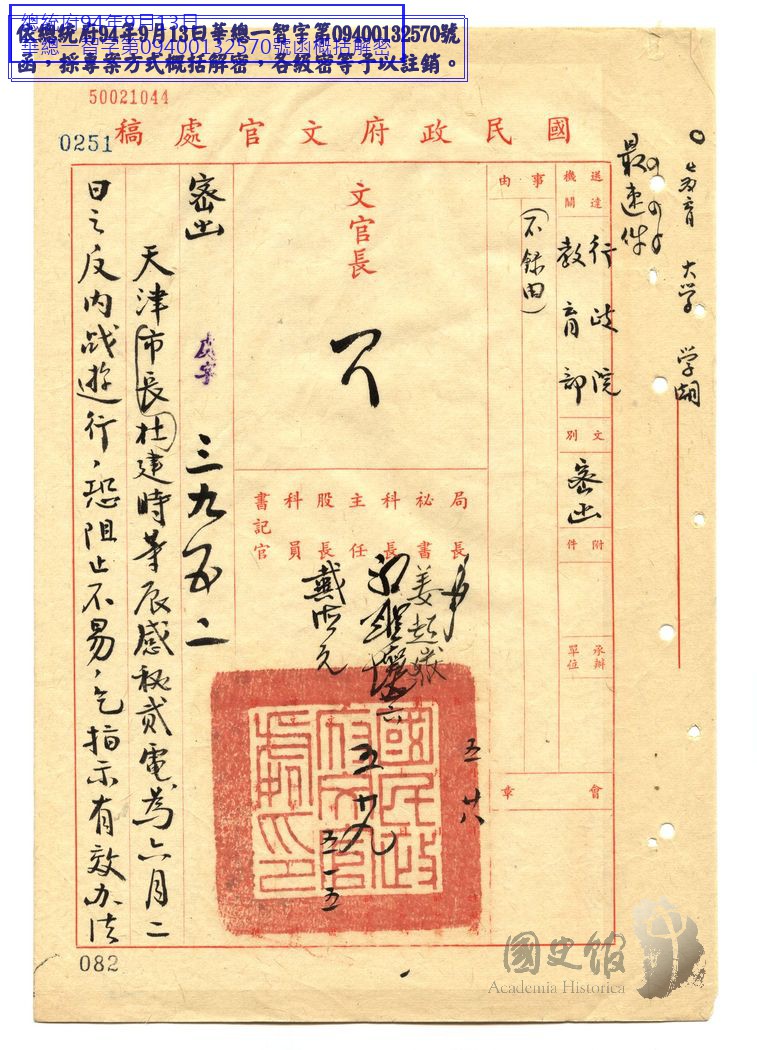 總統府94年9月13日
華總一智字第09400132570號函概括解密
依總統府94年9月13日華總一智字第09400132570號
函，採專案方式概括解密，各級密等予以註銷。
50021044
0251
國民政府文官處稿
最速件
教育 大学 学潮
送達機關
行政院
教育部
文別
密函
附件
承辦單位
事由
（不錄由）
會章
文官長
局長
秘書
科長
主任
股長
科員
書記官
姜超嶽
五 廿八
五 廿九
密函
處字
三九五二
天津市長杜建時等辰感秘貳電為六月二
日之反內战遊行，恐阻止不易，乞指示有效办法
082
國史館
Academia Historica